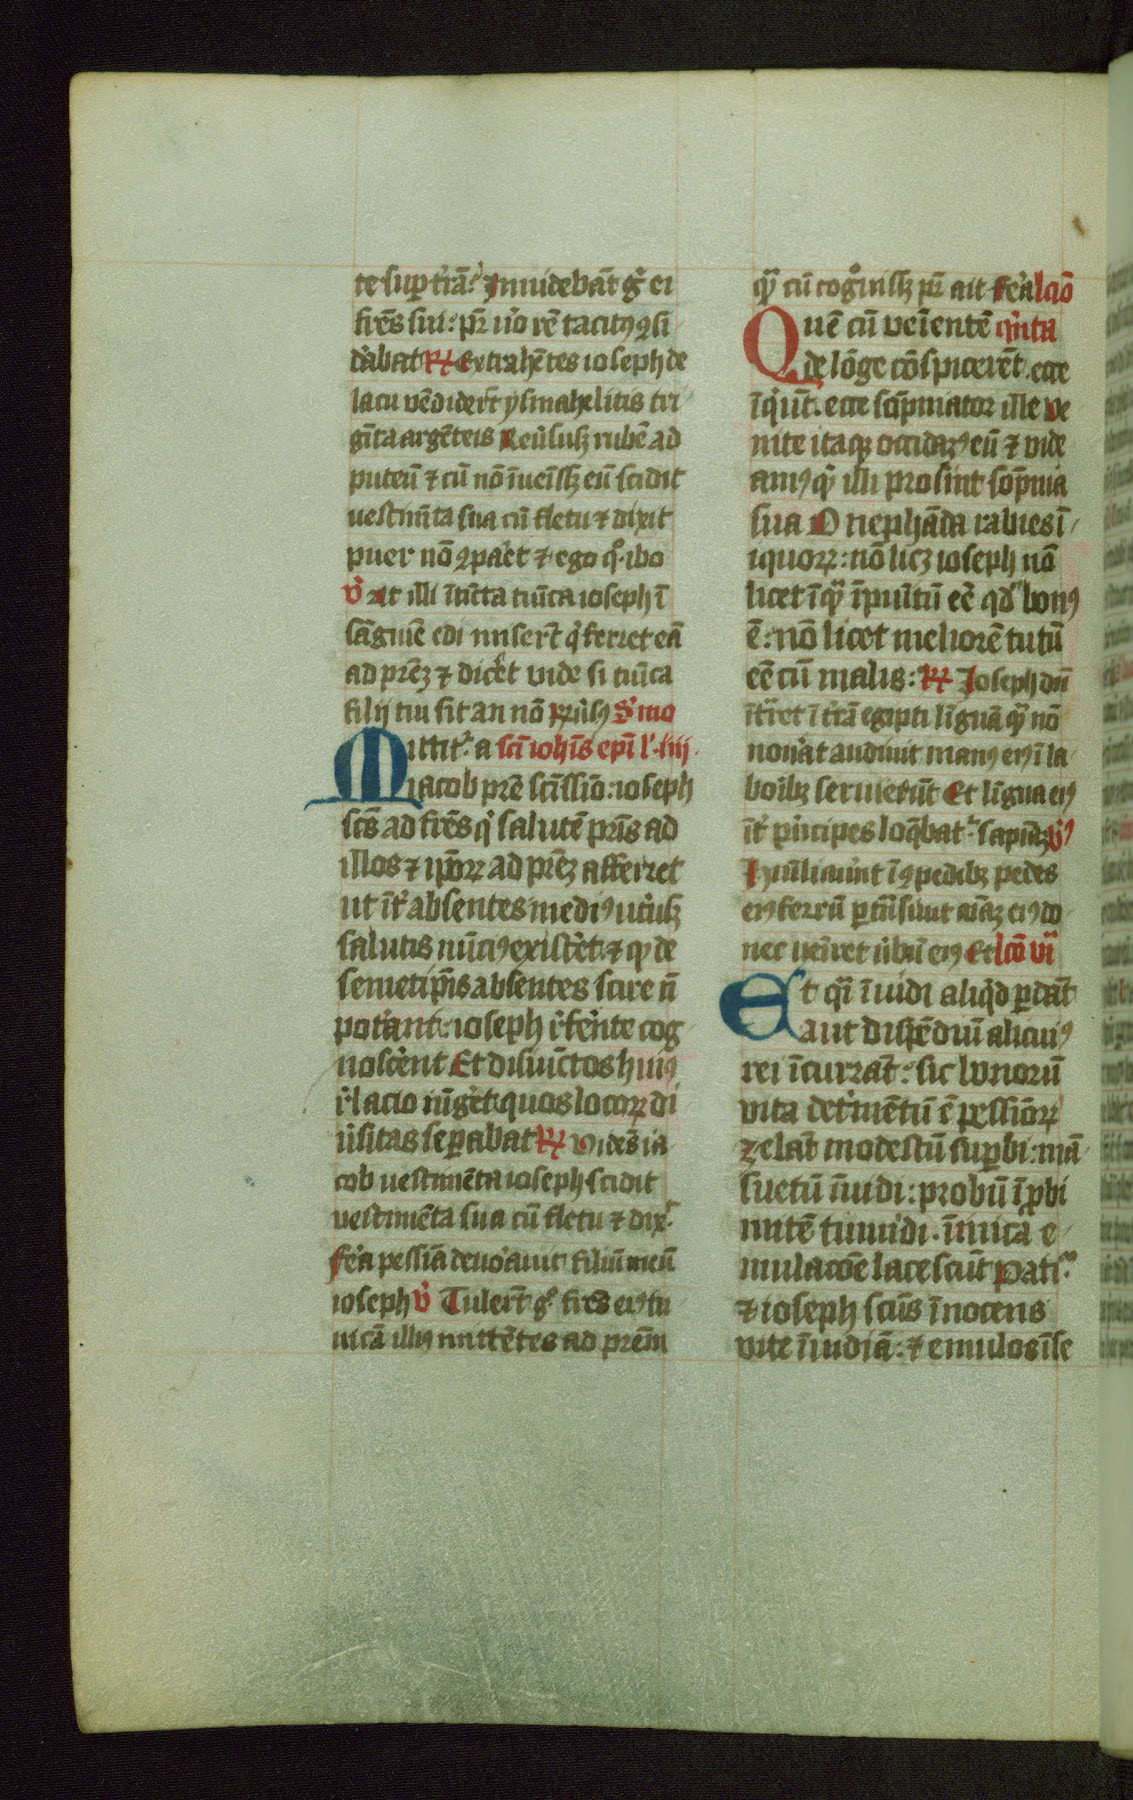 te sup tr̄a. Inuidebāt gͦ ei
fr̄es sui: pr̄ u͛o rē tacitꝰ ꝯsi
d͛abat R Extrahētes ioseph de
lacu vēdider̄t ysmahelitis tri
gīta argēteis Reu͛susꝫ rubē ad
puteū ⁊ cū nō īueīsꝫ eū scidit
vestmīta sua cū fletu ⁊ dixit
puer nō ꝯpa͛et ⁊ ego qͦ ibo
V͛ At illi ītīcta tunica ioseph ī
sāguīe edi miser̄t q͛ ferret eā
ad pr̄eꝫ ⁊ dic͛et vide si tuīca
filij tui sit an nō Pri͛usꝰ S͛mo
Mittit͛ a sc̄i ioh̄is ep̄i l' liij.
iacob pr̄e sc̄issīo: ioseph
sc̄s ad fr̄es q͛ salutē pr̄is ad
illos ⁊ ip̄oꝝ ad pr̄eꝫ afferret
ut īt͛ absentes mediꝰ ut͛usꝫ
salutis nūciꝰ exist͛et: ⁊ qꝫ de
semetip̄is absentes scire n̄
pot͛ant: ioseph r͛fe͛nte cog
nosc͛ent Et disiūctos huiꝰ
r͛lacio iūg͛et quos locoꝝ di
u͛sitas sepabat R Vides̄ ia
cob vestimēta ioseph scidit
vestimēta sua cū fletu ⁊ dix͛
fe͛a pessīa deuo͛auit filiū meū
ioseph V͛ Tuler̄t gͦ fr̄es eiꝰ tu
nicā illiꝰ mittētes ad pr̄em
qꝫ cū cogͦuisꝫ pr̄ ait fe͛a lcīo
Quē cū veīentē q͛nta
de lōge cōspicerēt. ecce
īq͛ūt. ecce sōpniator ille Ve
nite itaqꝫ occidamꝰ eū ⁊ vide
amꝰ q͛ illi prosint sōpnia
sua O nephāda rabies ī
iquoꝝ: nō licꝫ ioseph nō
licet īqꝫ īpultū eē qd bonꝰ
ē: nō licet meliorē tutū
eē cū malis: R Ioseph dū
ītrͣet ī tr̄ā egipti līguā qͣ nō
nou͛at audiuit manꝰ eiꝰ ī la
boibꝫ seruierūt Et līgua eiꝰ
īt͛ pͥncipes loq̄bat͛ sapiāꝫ V͛
Humiliau͛nt ī ꝯpedibꝫ pedes
eiꝰ ferrū ptn̄siuit aīaꝫ eiꝰ do
nec ueīret ūbū eiꝰ Et lcō vi
Et qͣi īuidi aliq͛d pdāt
aut dispēdiū alicuiꝰ
rei īcurrāt: sic bonorū
vita det͛mētū ē pessīoꝝ
zelāt modestū supbi: mā
suetū īuidi: probū īpbi
mitē tumidi. īmica e
mulacōe lacescūt Pati͛
⁊ ioseph sc̄us īnocens
vite īuidiā: ⁊ emulos īse